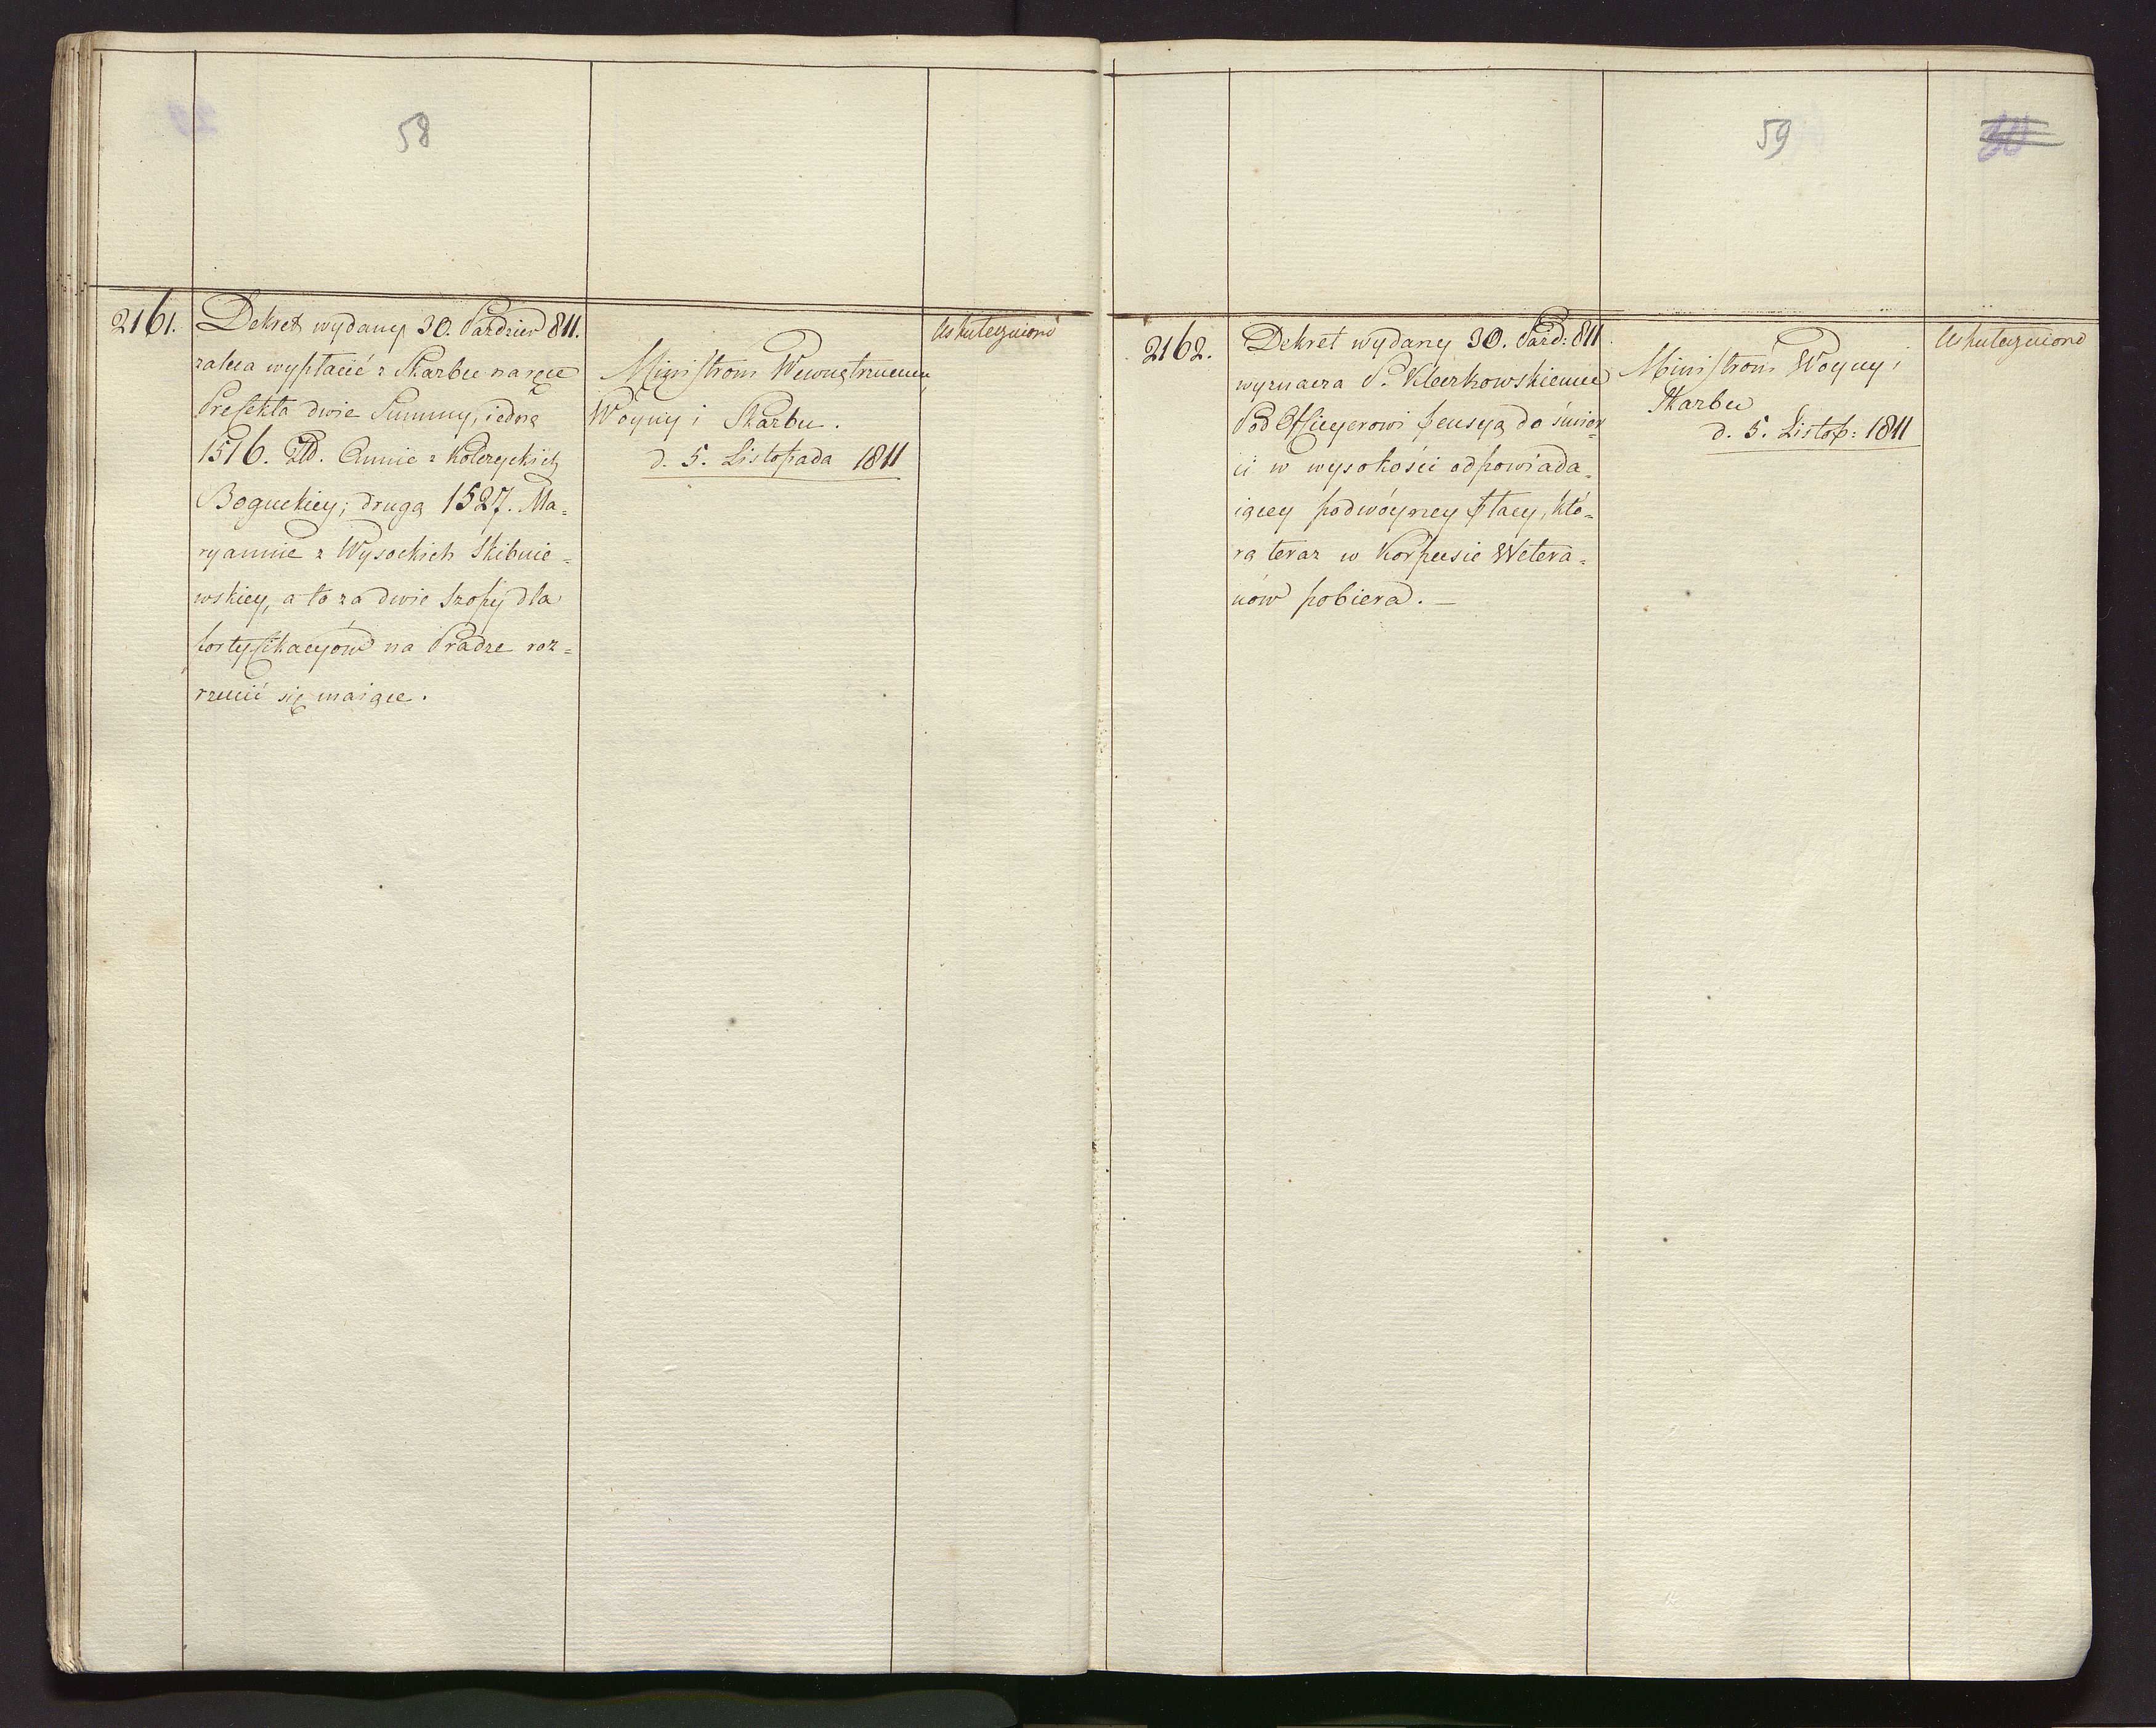 58
2161.
Dekret wydany 30. Paździer 811.
zaleca wypłacić z Skarbu na ręce
Prefekta dwie Summy, iedną
1516. Zł. Annie z Kolczyckich
Boguckiey; drugą 1527. Ma-
ryannie z Wysockich Skibnie-
wskiey, a to za dwie Szopy dla
fortyfikacyów na Pradze roz-
rzucić się maiące.
Ministrom Wewnętrznemu
Woyny i Skarbu.
d. 5. Listopada 1811
Uskuteczniono
59
60
2162.
Dekret wydany 30. Paźd: 811.
wyznacza P. Kleczkowskiemu
Pod Officyerowi pensyą do śmier-
ci w wysokości odpowiada-
iącey podwóyney płacy, któ-
rą teraz w Korpusie Wetera-
nów pobiera. —
Ministrom Woyny i
Skarbu
d. 5. Listop: 1811
Uskuteczniono